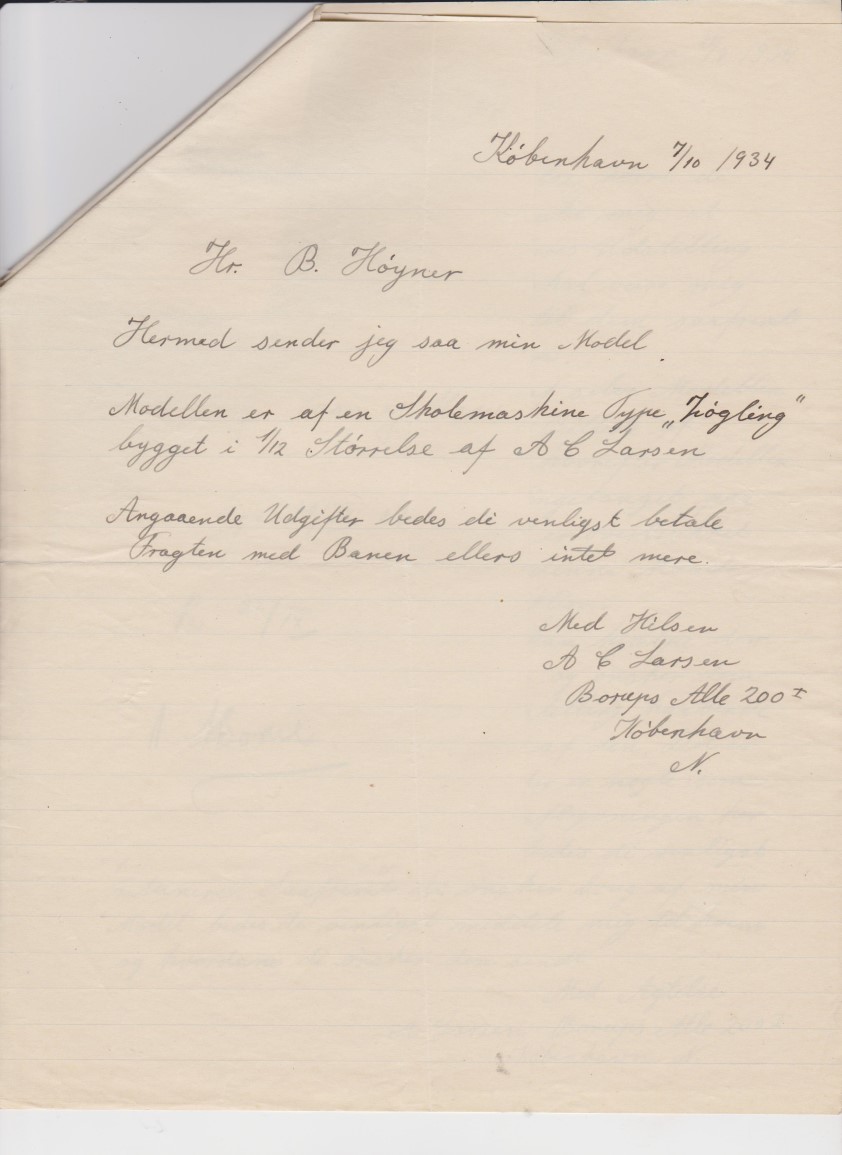 København 7/10 1934
Hr. B. Höyner
Hermed sender jeg saa min Model.
Modellen er af en Skolemaskine Type „Zögling“
bygget i 1/12 Störrelse af A C Larsen
Angaaende Udgifter bedes de venligst betale
Fragten med Banen ellers intet mere.
Med Hilsen
A C Larsen
Borups Alle 200 I
København
N.